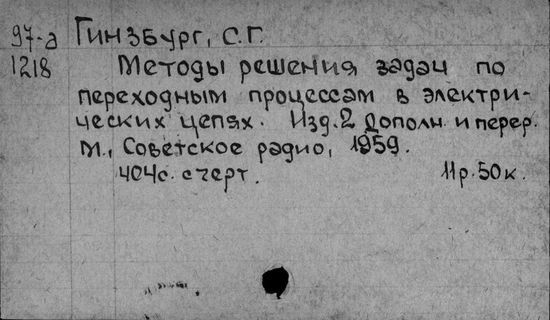 97-а Гинзбург, С.Г.
1218 Методы решения задач по
переходным процессам в электри-
ческих цепях. Изд.2 Дополн. и перер.
М., Советское радио, 1959.
404с. с черт. 11р.50к.